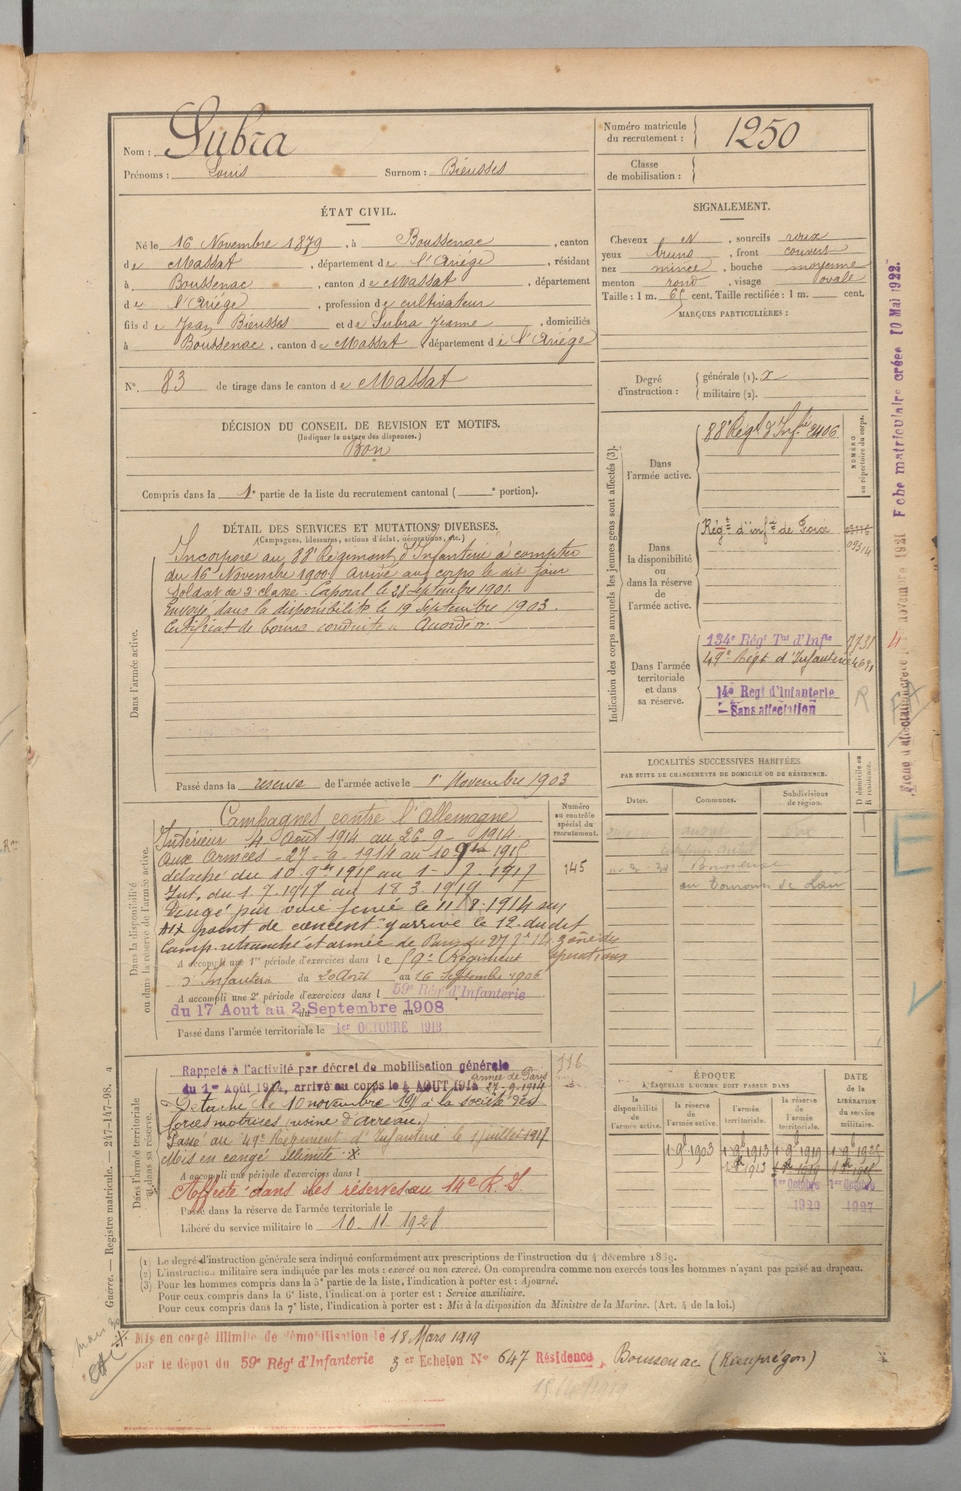 Nom : Subra
Prénoms : Louis Surnom : Biéusses
Numéro matricule du recrutement : 1250
Classe de mobilisation :
ÉTAT CIVIL.
Né le 16 Novembre 1879, à Boussenac, canton
de Massat, département de l'Ariége, résidant
à Boussenac, canton de Massat, département
de l'Ariége, profession de cultivateur
fils de Jean Biéusses et de Subra Jeanne, domiciliés
à Boussenac, canton de Massat, département de l'Ariége
N° 83 de tirage dans le canton de Massat
SIGNALEMENT.
Cheveux et, sourcils roux
yeux bruns, front couvert
nez mince, bouche moyenne
menton rond, visage ovale
Taille : 1 m. 65 cent. Taille rectifiée : 1 m. cent.
MARQUES PARTICULIÈRES :
Degré d'instruction : générale (1). x
militaire (2).
DÉCISION DU CONSEIL DE REVISION ET MOTIFS.
(Indiquer la nature des dispenses.)
Bon
Compris dans la 1e partie de la liste du recrutement cantonal ( e portion).
DÉTAIL DES SERVICES ET MUTATIONS DIVERSES.
(Campagnes, blessures, actions d'éclat, décorations, etc.)
Dans l'armée active.
Incorporé au 88e Régiment d'Infanterie à compter
du 16 Novembre 1900. Arrivé au corps le dit jour
Soldat de 2e classe. Caporal le 28 Septembre 1901.
Envoyé dans la disponibilité le 19 Septembre 1903.
Certificat de bonne conduite Accordé.
Passé dans la reserve de l'armée active le 1er Novembre 1903
Indication des corps auxquels les jeunes gens sont affectés (3).
NUMÉRO au répertoire du corps.
Dans l'armée active.
88e Régt d'Infie 2406
Dans la disponibilité ou dans la réserve de l'armée active.
Régt d'infie de Foix
09514
Dans l'armée territoriale et dans sa réserve.
134e Régt Tal d'Infie 7731
49e Régt d'Infanterie
14e Régt d'Infanterie
Sans affectation
LOCALITÉS SUCCESSIVES HABITÉES
PAR SUITE DE CHANGEMENTS DE DOMICILE OU DE RÉSIDENCE.
Dates. Communes. Subdivisions de région.
D domicile ou R résidence.
Numéro au contrôle spécial du recrutement.
145
Dans la disponibilité ou dans la réserve de l'armée active.
Campagnes contre l'Allemagne
Intérieur 4 Août 1914 au 26-9-1914.
Aux Armées - 27-9-1914 au 10 9bre 1915
détaché du 10 9bre 1915 au 1-7-1917
Int. du 1.7.1917 au 18.3.1919
le 11/8/1914 au
point de concentn y arrivé le 12 du dit
Camp retranché et armée de Paris du 27
A accompli une 1re période d'exercices dans le 59e Régiment
d'Infanterie du 20 Août au 16 Septembre 1906
A accompli une 2e période d'exercices dans l 59e Régt d'Infanterie
du 17 Aout au 2 Septembre 1908
Passé dans l'armée territoriale le 1er OCTOBRE 1913
Dans l'armée territoriale et dans sa réserve.
Rappelé à l'activité par décret de mobilisation générale
du 1er Août 1914, arrivé au corps le 4 AOUT 1914 armée de Paris 27-9-1914
Détaché le 10 novembre 1915 à la société des
forces motrices (usine d'Arreau)
Passé au 49e Régiment d'Infanterie le 1 juillet 1917
Mis en congé illimité
A accompli une période d'exercices dans l
Affecté dans les réserves au 14e R.I.
Passé dans la réserve de l'armée territoriale le
Libéré du service militaire le 10 11 1928
ÉPOQUE
À LAQUELLE L'HOMME DOIT PASSER DANS
la disponibilité de l'armée active. la réserve de l'armée active. l'armée territoriale. la réserve de l'armée territoriale.
DATE de la LIBÉRATION du service militaire.
1 9b 1903 1 9b 1913 1 9b 1919
1er Octobre 1er Octobre
(1) Le degré d'instruction générale sera indiqué conformément aux prescriptions de l'instruction du 4 décembre 1889.
(2) L'instruction militaire sera indiquée par les mots : exercé ou non exercé. On comprendra comme non exercés tous les hommes n'ayant pas passé au drapeau.
(3) Pour les hommes compris dans la 5e partie de la liste, l'indication à porter est : Ajourné.
Pour ceux compris dans la 6e liste, l'indication à porter est : Service auxiliaire.
Pour ceux compris dans la 7e liste, l'indication à porter est : Mis à la disposition du Ministre de la Marine. (Art. 4 de la loi.)
Guerre. — Registre matricule. — 247-147-98.
Mis en congé illimité de démobilisation le 18 Mars 1919
par le dépot du 59e Régt d'Infanterie 3er Echelon N° 647 Résidence, Boussenac (Rieuprégon)
Fiche matriculaire créée 10 Mai 1922.